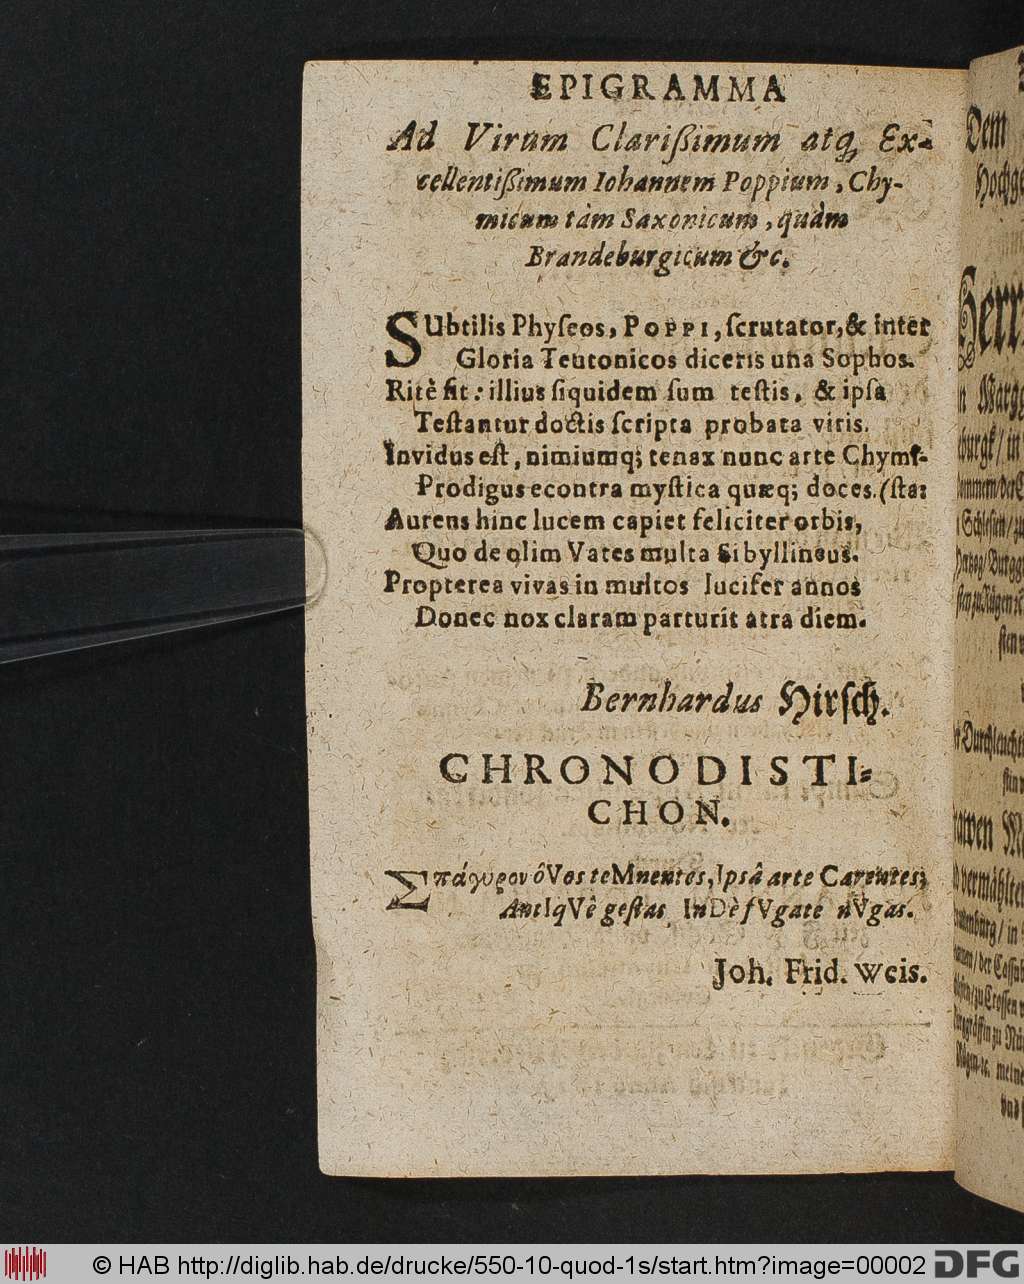 EPIGRAMMA
Ad Virum Clarißimum atq; Ex-
cellentißimum Iohannem Poppium, Chy-
micum tàm Saxonicum, quàm
Brandeburgicum &c.
SUbtilis Phyſeos, POPPI, ſcrutator, & inter
Gloria Teutonicos diceris una Sophos.
Ritè fit: illius ſiquidem ſum teſtis, & ipſa
Teſtantur doctis ſcripta probata viris.
Invidus eſt, nimiumq; tenax nunc arte Chymi-
Prodigus econtra myſtica quæq; doces. (ſta:
Aurens hinc lucem capiet feliciter orbis,
Quo de olim Vates multa Sibyllinus.
Propterea vivas in multos lucifer annos
Donec nox claram parturit atra diem.
Bernhardus Hirſch.
CHRONODISTI-
CHON.
Σπάγυρον ôVos teMnentes, Ipsâ arte Carentes;
AntIqVè geſtas, InDè fVgate nVgas.
Joh. Frid. Weis.
Dem
Herr
© HAB http://diglib.hab.de/drucke/550-10-quod-1s/start.htm?image=00002
DFG